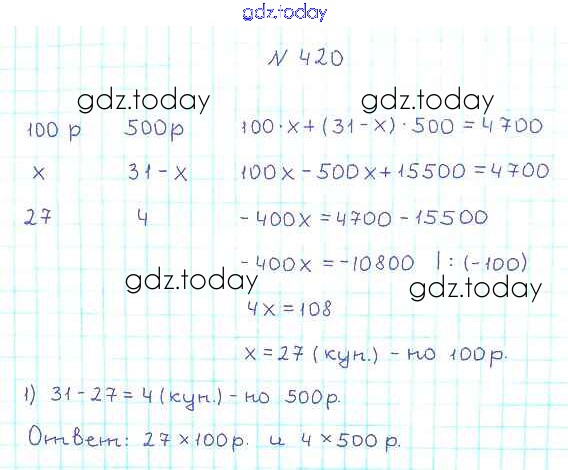 gdz.today
N 420
gdz.today gdz.today
100 р 500р 100·x+(31-x)·500=4700
x 31-x 100x-500x+15500=4700
27 4 -400x=4700-15500
-400x=-10800 |:(-100)
gdz.today gdz.today
4x=108
x=27 (куп.) - по 100р.
1) 31-27=4 (куп.) - по 500р.
Ответ: 27×100р. и 4×500р.